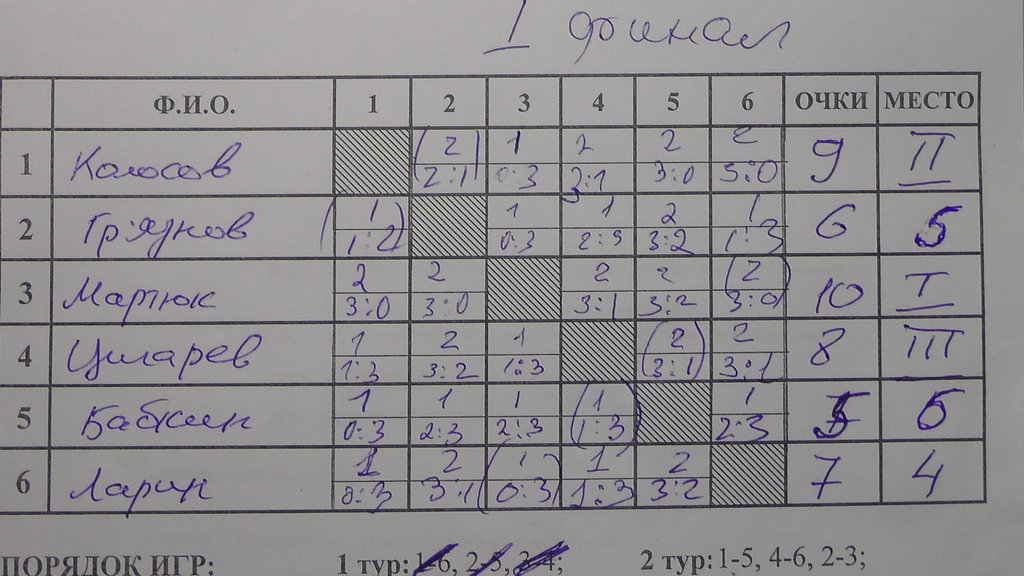 I финал
Ф.И.О. 1 2 3 4 5 6 ОЧКИ МЕСТО
1 Колосов (2 1 2 2 2 9 II
2:1) 0:3 3:1 3:0 3:0
2 Грязнов (1 1 1 2 1 6 5
1:2) 0:3 2:3 3:2 1:3
3 Мартюк 2 2 2 2 (2 10 I
3:0 3:0 3:1 3:2 3:0)
4 Цыларев 1 2 1 (2 2 8 III
1:3 3:2 1:3 3:1) 3:1
5 Бабкин 1 1 1 (1 1 5 6
0:3 2:3 2:3 1:3) 2:3
6 Ларин 1 2 (1 1 2 7 4
0:3 3:1 0:3) 1:3 3:2
ПОРЯДОК ИГР: 1 тур: 1-6, 2-5, 3-4; 2 тур: 1-5, 4-6, 2-3;